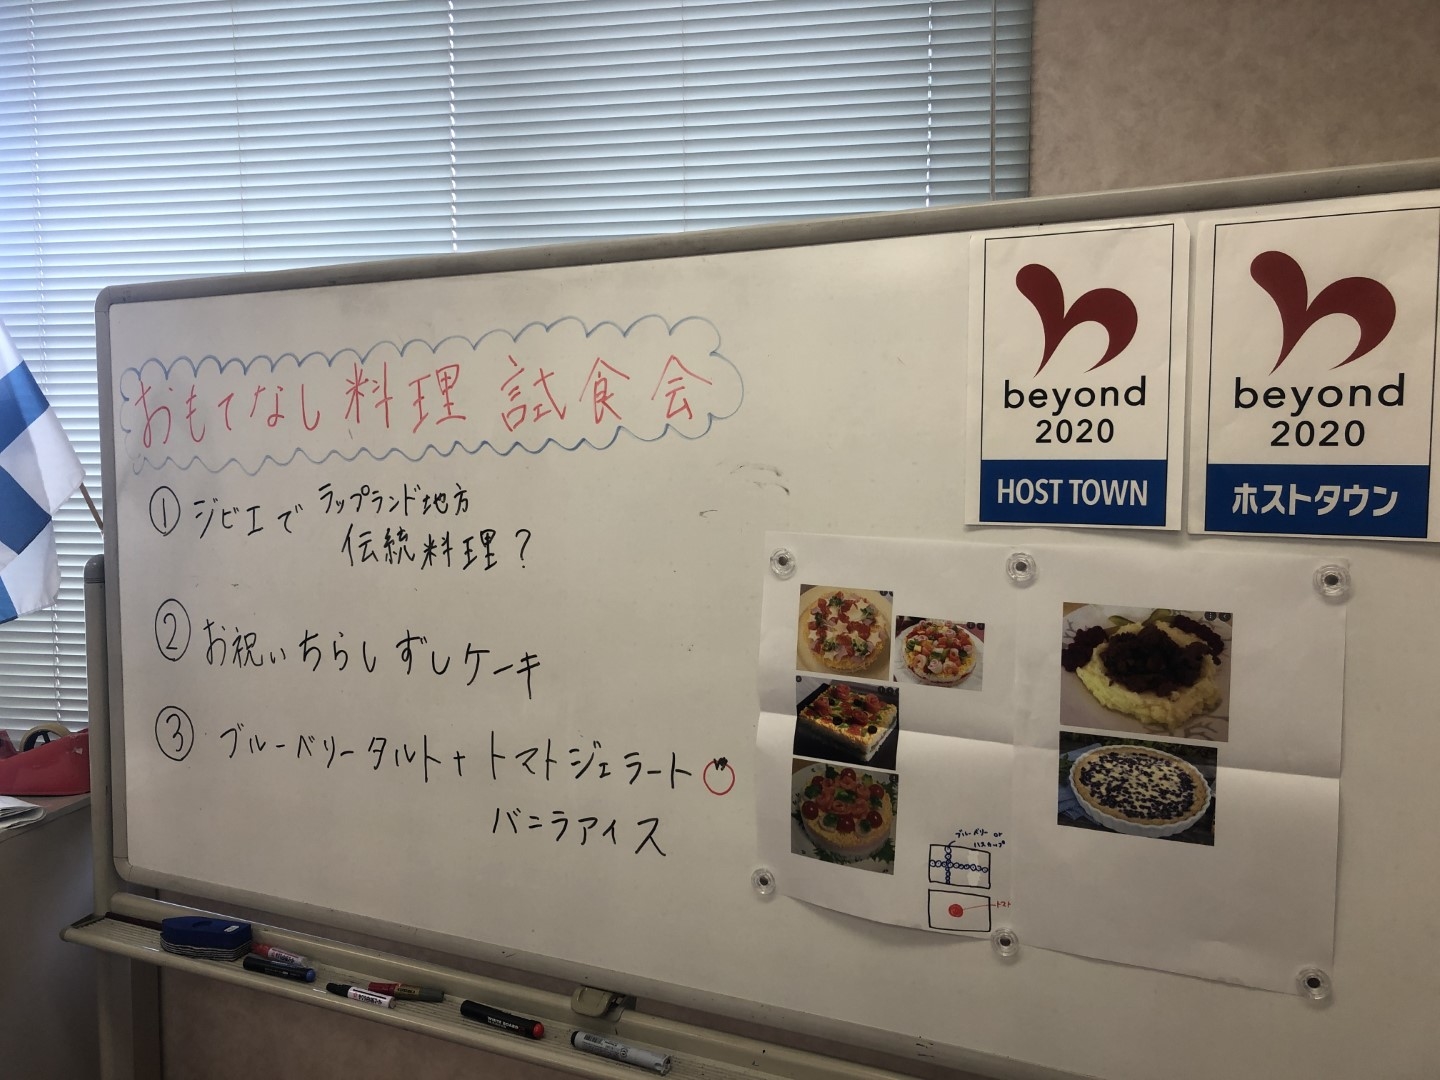 おもてなし料理 試食会
① ジビエで ラップランド地方
伝統料理?
② お祝いちらしずしケーキ
③ ブルーベリータルト+トマトジェラート
バニラアイス
beyond
2020
HOST TOWN
beyond
2020
ホストタウン
ブルーベリー or
ハスカップ
トマト